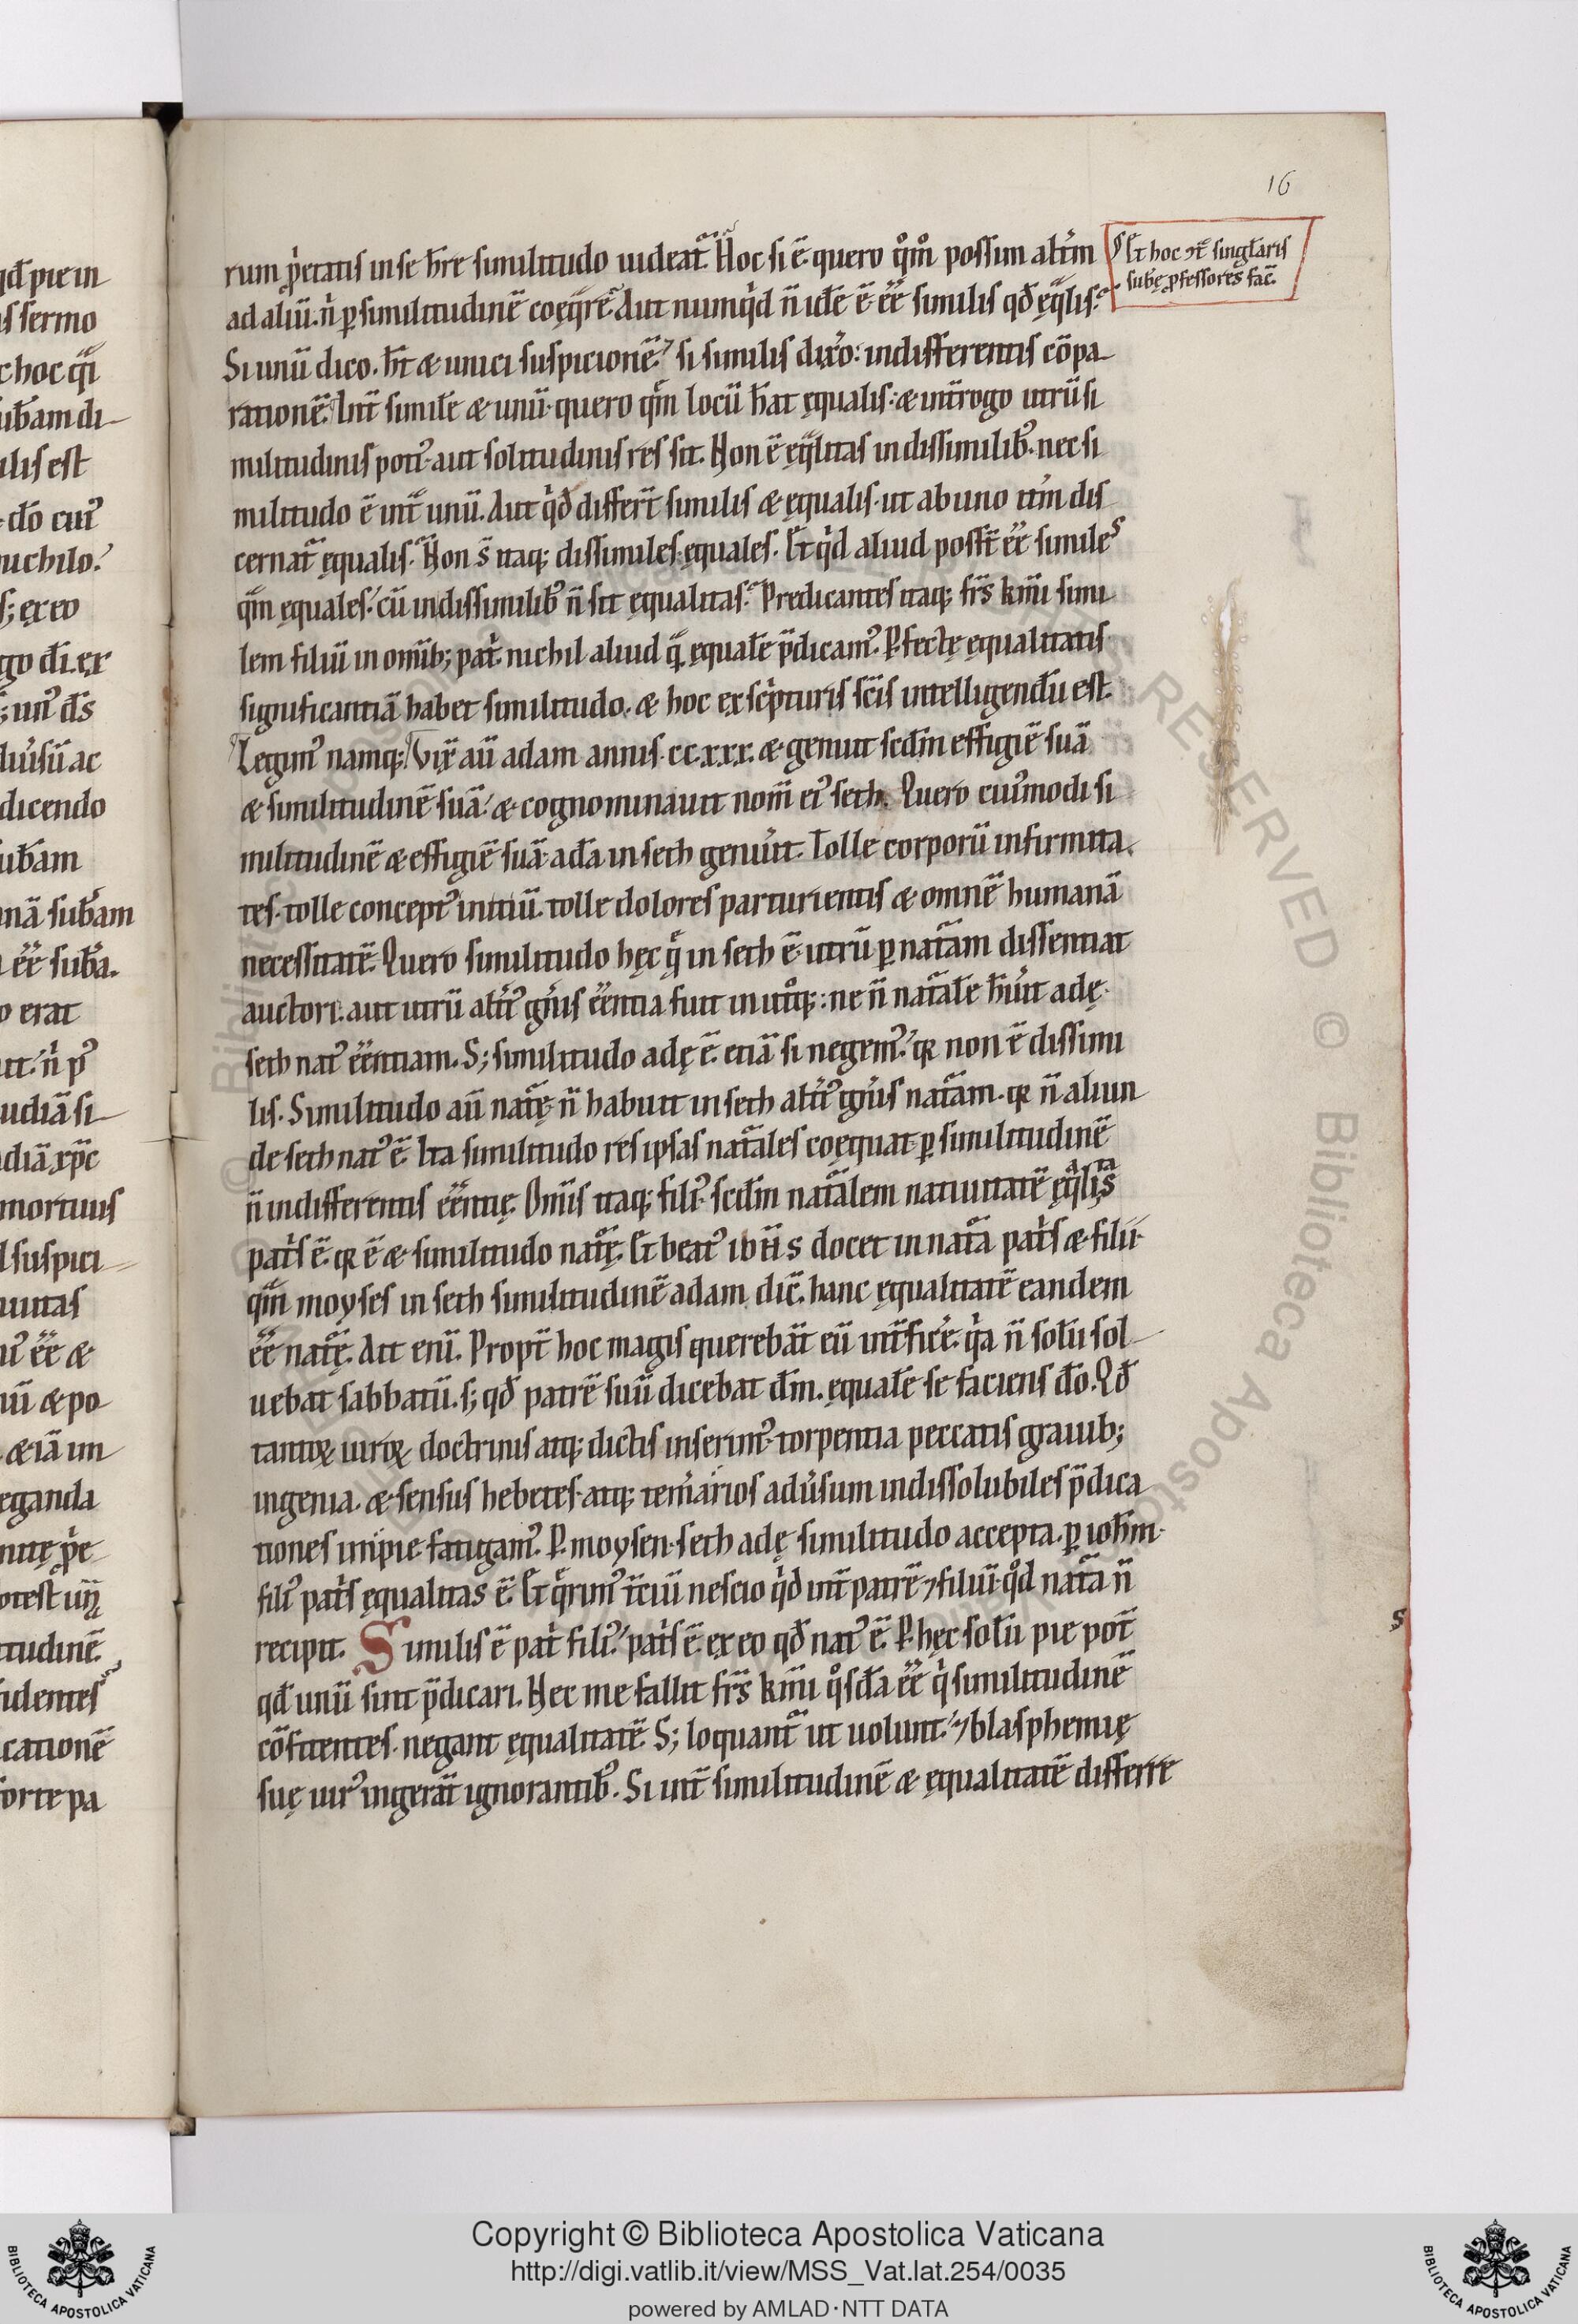 16
rum p̍etatis in se h̄re similitudo uideat᷑. Hoc si ē quero qͦmͦ possim alt̍m
Et hoc ɔt̄ singl̄aris
sub̄ę ꝓfessores fac̄.
ad aliū. n̍ ꝑ similitudinē coęq̄re. Aut nunqͥd n̄ idē ē eē similis qđ ęq̄lis.
Si unū dico. h̄t & unici suspicionē. si similis dix̍o: indifferentis cōpa
rationē. Int̄ simile & unū quero qm̄ locū h̄at ęqualis: & int̄rogo utrū si
militudinis poti᷒ aut solitudinis res sit. Non ē ęq̄litas in dissimilib᷒. nec si
militudo ē int̄ unū. Aut qͥd differt̄ similis & ęqualis. ut ab uno it̍m dis
cernat᷑ ęqualis. Non s̄ itaq; dissimiles ęquales. Et qͥd aliud post̄ eē similes
qm̄ ęquales. cū in dissimilib᷒ n̄ sit ęqualitas. Predicantes itaq; fr̄s km̄i simi
lem filiū in omīb; pat̍. nichil aliud q̄ ęquale p̄dicam᷒. Ꝑfectę ęqualitatis
significantiā habet similitudo. & hoc ex sc̍pturis sc̄is intelligendū est.
Legim᷒ namq; Vix̄ aū adam annis cc.xxx. & genuit scđm effigiē suā
& similitudinē suā. & cognominauit nom̄ ei᷒ seth. Quero cui᷒modi si
militudinē & effigiē suā adā in seth genu̍it. Tolle corporū infirmita
tes. tolle concept᷒ initiū. tolle dolores parturientis & omnē humanā
necessitatē. Quero similitudo hęc q̄ in seth ē utrū ꝑ nat᷑am dissentiat
auctori. aut utrū alt̍i᷒ gn̍is eēntia fuit in utͦq;: ne n̄ nat᷑ale h̄u̍it adę
seth nat᷒ eēntiam. S; similitudo adę ē. etiā si negem᷒. qꝛ non ē dissimi
lis. Similitudo aū nat᷑ę n̄ habuit in seth alt̍i᷒ gn̍is nat᷑am. qꝛ n̄ aliun
de seth nat᷒ ē. Ita similitudo res ipsas nat᷑ales coęquat ꝑ similitudinē
n̄ indifferentis eēntię. Om̄is itaq; fili᷒ scđm nat᷑alem natiuitatē ęq̄litas
pat̍s ē. qꝛ ē & similitudo nat᷑ę. Et beat᷒ ioh̄s docet in nat᷑a pat̍s & filii
qm̄ moyses in seth similitudinē adam dic̄. hanc ęqualitatē eandem
eē nat᷑ę. Ait enī. Propt̄ hoc magis querebāt eū int̄fic̍e. qͥa n̄ solū sol
uebat sabbatū. s; qđ patrē suū dicebat dm̄. ęquale se faciens do. Qđ
tantoꝝ uiroꝝ doctrinis atq; dictis inserim᷒ torpentia peccatis grauib;
ingenia. & sensus hebetes atq; tem̍arios adu̍sum indissolubiles p̄dica
tiones impie fatigam᷒. Ꝑ moysen seth adę similitudo accepta. ꝑ ioh̄m
fili᷒ pat̍s ęqualitas ē. Et q̄rim᷒ t̄ciū nescio qͥd int̄ patrē ⁊ filiū qͦd nat᷑a n̄
recipit. Similis ē pat̍ fili᷒. pat̍s ē ex eo qđ nat᷒ ē. Ꝑ hęc solū pie pot̄
qđ unū sint p̄dicari. Nec me fallit fr̄s km̄i qͦsdā eē qͥ similitudinē
cōfitentes negant ęqualitatē. S; loquant᷑ ut uolunt. ⁊ blasphemię
suę uir᷒ ingerāt ignorantib᷒. Si int̄ similitudinē & ęqualitatē differre
S
qđ pie in
s sermo
c hoc
ub̄am di
ilis est
do cui᷒
nichilo.
s; ex eo
go di. ex
un᷒ ds
diu̍sū ac
dicendo
ub̄am
nā sub̄am
eē sub̄a.
o erat
udiā si
diā xp̄c
mortuis
l suspici
unitas
eē &
nū & po
& iā un
eganda
otest
tudinē
identes
cationē
orte pa
© Biblioteca Apostolica
RESERVED © Biblioteca Apostolica
BIBLIOTECA APOSTOLICA VATICANA
Copyright © Biblioteca Apostolica Vaticana
http://digi.vatlib.it/view/MSS_Vat.lat.254/0035
powered by AMLAD·NTT DATA
BIBLIOTECA APOSTOLICA VATICANA